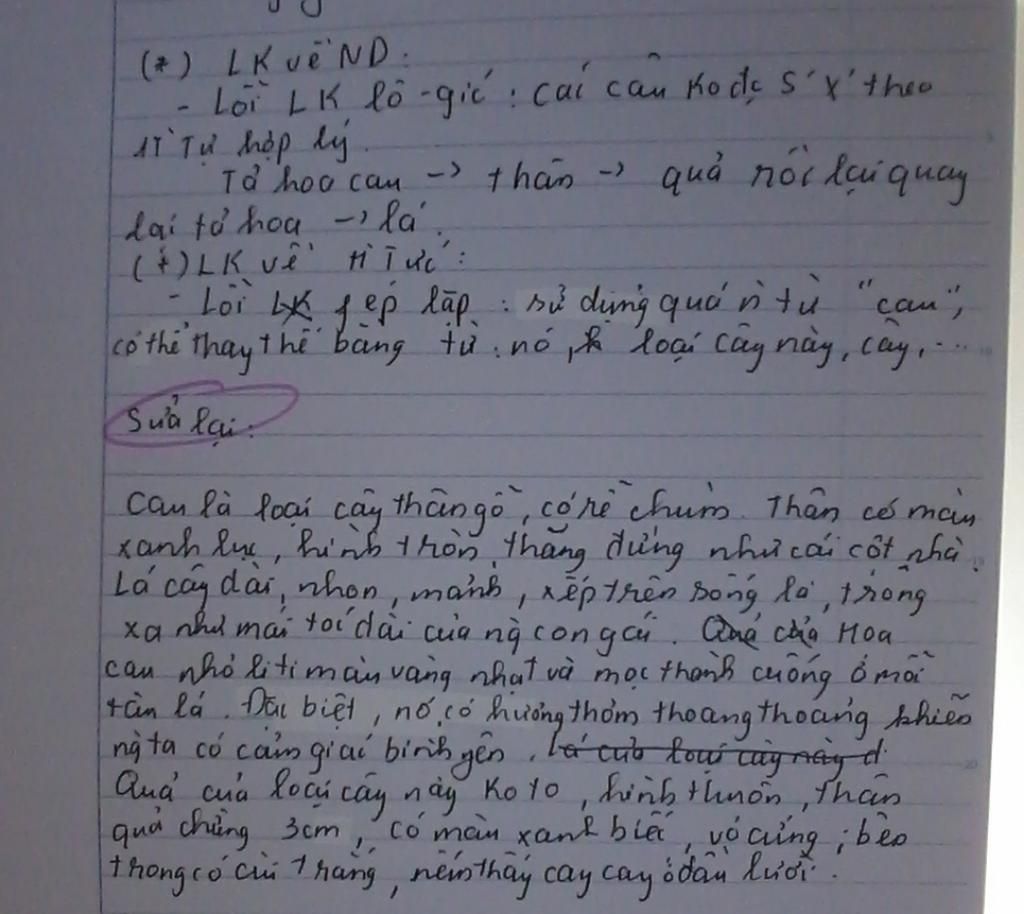 (*) LK về ND:
- Lỗi LK lô-gic: các câu ko đc s' x' theo
tự hợp lý.
Tả hoa cau -> thân -> quả rồi lại quay
lại tả hoa -> lá.
(*) LK về tức:
- Lỗi LK fép lặp: sử dụng quá từ "cau",
có thể thay thế bằng từ: nó, loại cây này, cây, ...
Sửa lại:
Cau là loại cây thân gỗ, có rễ chùm. Thân có màu
xanh lục, hình tròn, thẳng đứng như cái cột nhà.
Lá cây dài, nhọn, mảnh, xếp trên sống lá, trông
xa như mái tóc dài của ng con gái. Quả của Hoa
cau nhỏ li ti màu vàng nhạt và mọc thành cuống ở mỗi
tàn lá. Đặc biệt, nó có hương thơm thoang thoảng khiến
ng ta có cảm giác bình yên. Lá của loại cây này d
Quả của loại cây này ko to, hình thuôn, thân
quả chừng 3cm, có màu xanh biếc, vỏ cứng; bên
trong có cùi trắng, nếm thấy cay cay ở đầu lưỡi.